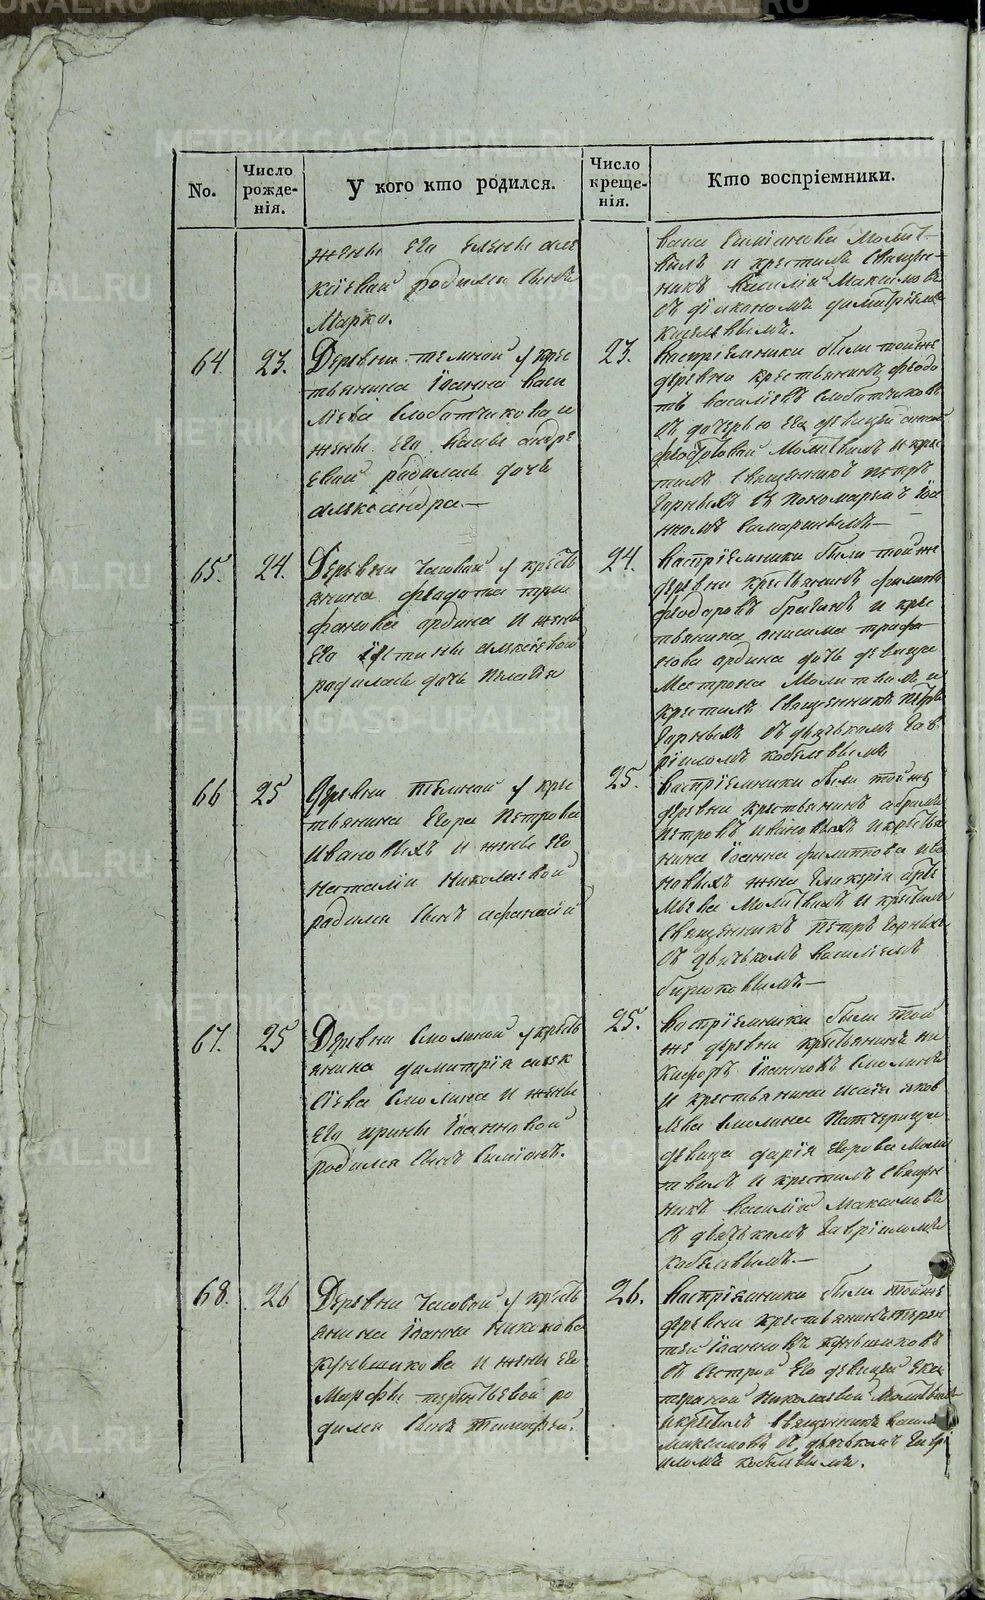 METRIKI.GASO-URAL.RU
No.
Число
рожде-
нія.
У кого кто родился.
Число
креще-
нія.
Кто воспріемники.
жены его Елены Але
ксіевой родился сынъ
Марко.
вилъ и крестилъ Священ-
никъ Василій Максимовъ
съ діакономъ Димитріемъ
64.
23.
Деревни Темной у кре
стьянина Іоанна Васи
льева Слободчикова и
жены его Андре
евой родилась дочь
Александра.—
23.
Воспріемники были тойже
деревни крестьянинъ Федо
тъ Васильевъ Слободчиковъ
съ дочерью его девицей
Федотовой Молитвилъ и кре
стилъ Священникъ Петръ
Горныхъ съ пономаремъ Іоа
нномъ —
65.
24.
Деревни Часовой у кресть
янина Федота Три
фанова Ардина и жены
его Устиньи Алексіевой
родилась дочь Пелагія
24.
Воспріемники были тойже
деревни крестьянинъ Филипъ
Феодоровъ и кре
стьянина Анисима Трифа
нова Ардина дочь девица
Матрона Молитвилъ и
крестилъ Священникъ Петръ
Горныхъ съ дьячькомъ Гав
ріломъ Кобелевымъ
66
25
Деревни Темной у кре
стьянина Егора Петрова
Ивановыхъ и жены его
Наталіи Николаевой
родился сынъ Афанасій
25.
Воспріемники были тойже
деревни крестьянинъ Абрамъ
Петровъ Ивановыхъ и крестья
нина Іоанна Филиппова Ива
новыхъ жена Гликерія Арте
мьева Молитвилъ и крестилъ
Священникъ Петръ Горныхъ
съ дьячькомъ Василіемъ
Бирюковымъ.—
67.
25
Деревни Смолиной у кресть
янина Димитрія Алек
сіева Смолина и жены
его Ирины Іоанновой
родился сынъ Симіонъ.
25.
Воспріемники были той
же деревни крестьянинъ Ни
кифоръ Іоанновъ Смолинъ
и крестьянина Исаіи Яков
лева Смолина Патчерица
девица Дарія Егорова Моли
твилъ и крестилъ Священ
никъ Василій Максимовъ
съ дьячькомъ Гавріиломъ
Кобелевымъ.—
68.
26
Деревни Часовой у кресть
янина Іоанна Никонова
Кунгицикова и жены его
Марфы Терентьевой ро
дился сынъ Тимофей.
26.
Воспріемники были тойже
деревни крестьянинъ Терен
тей Іоанновъ
съ сестрой его девицей Ека
териной Николаевой Молитвилъ
и крестилъ Священникъ Василій
Максимовъ съ дьячькомъ Гаврі
иломъ Кобелевымъ.